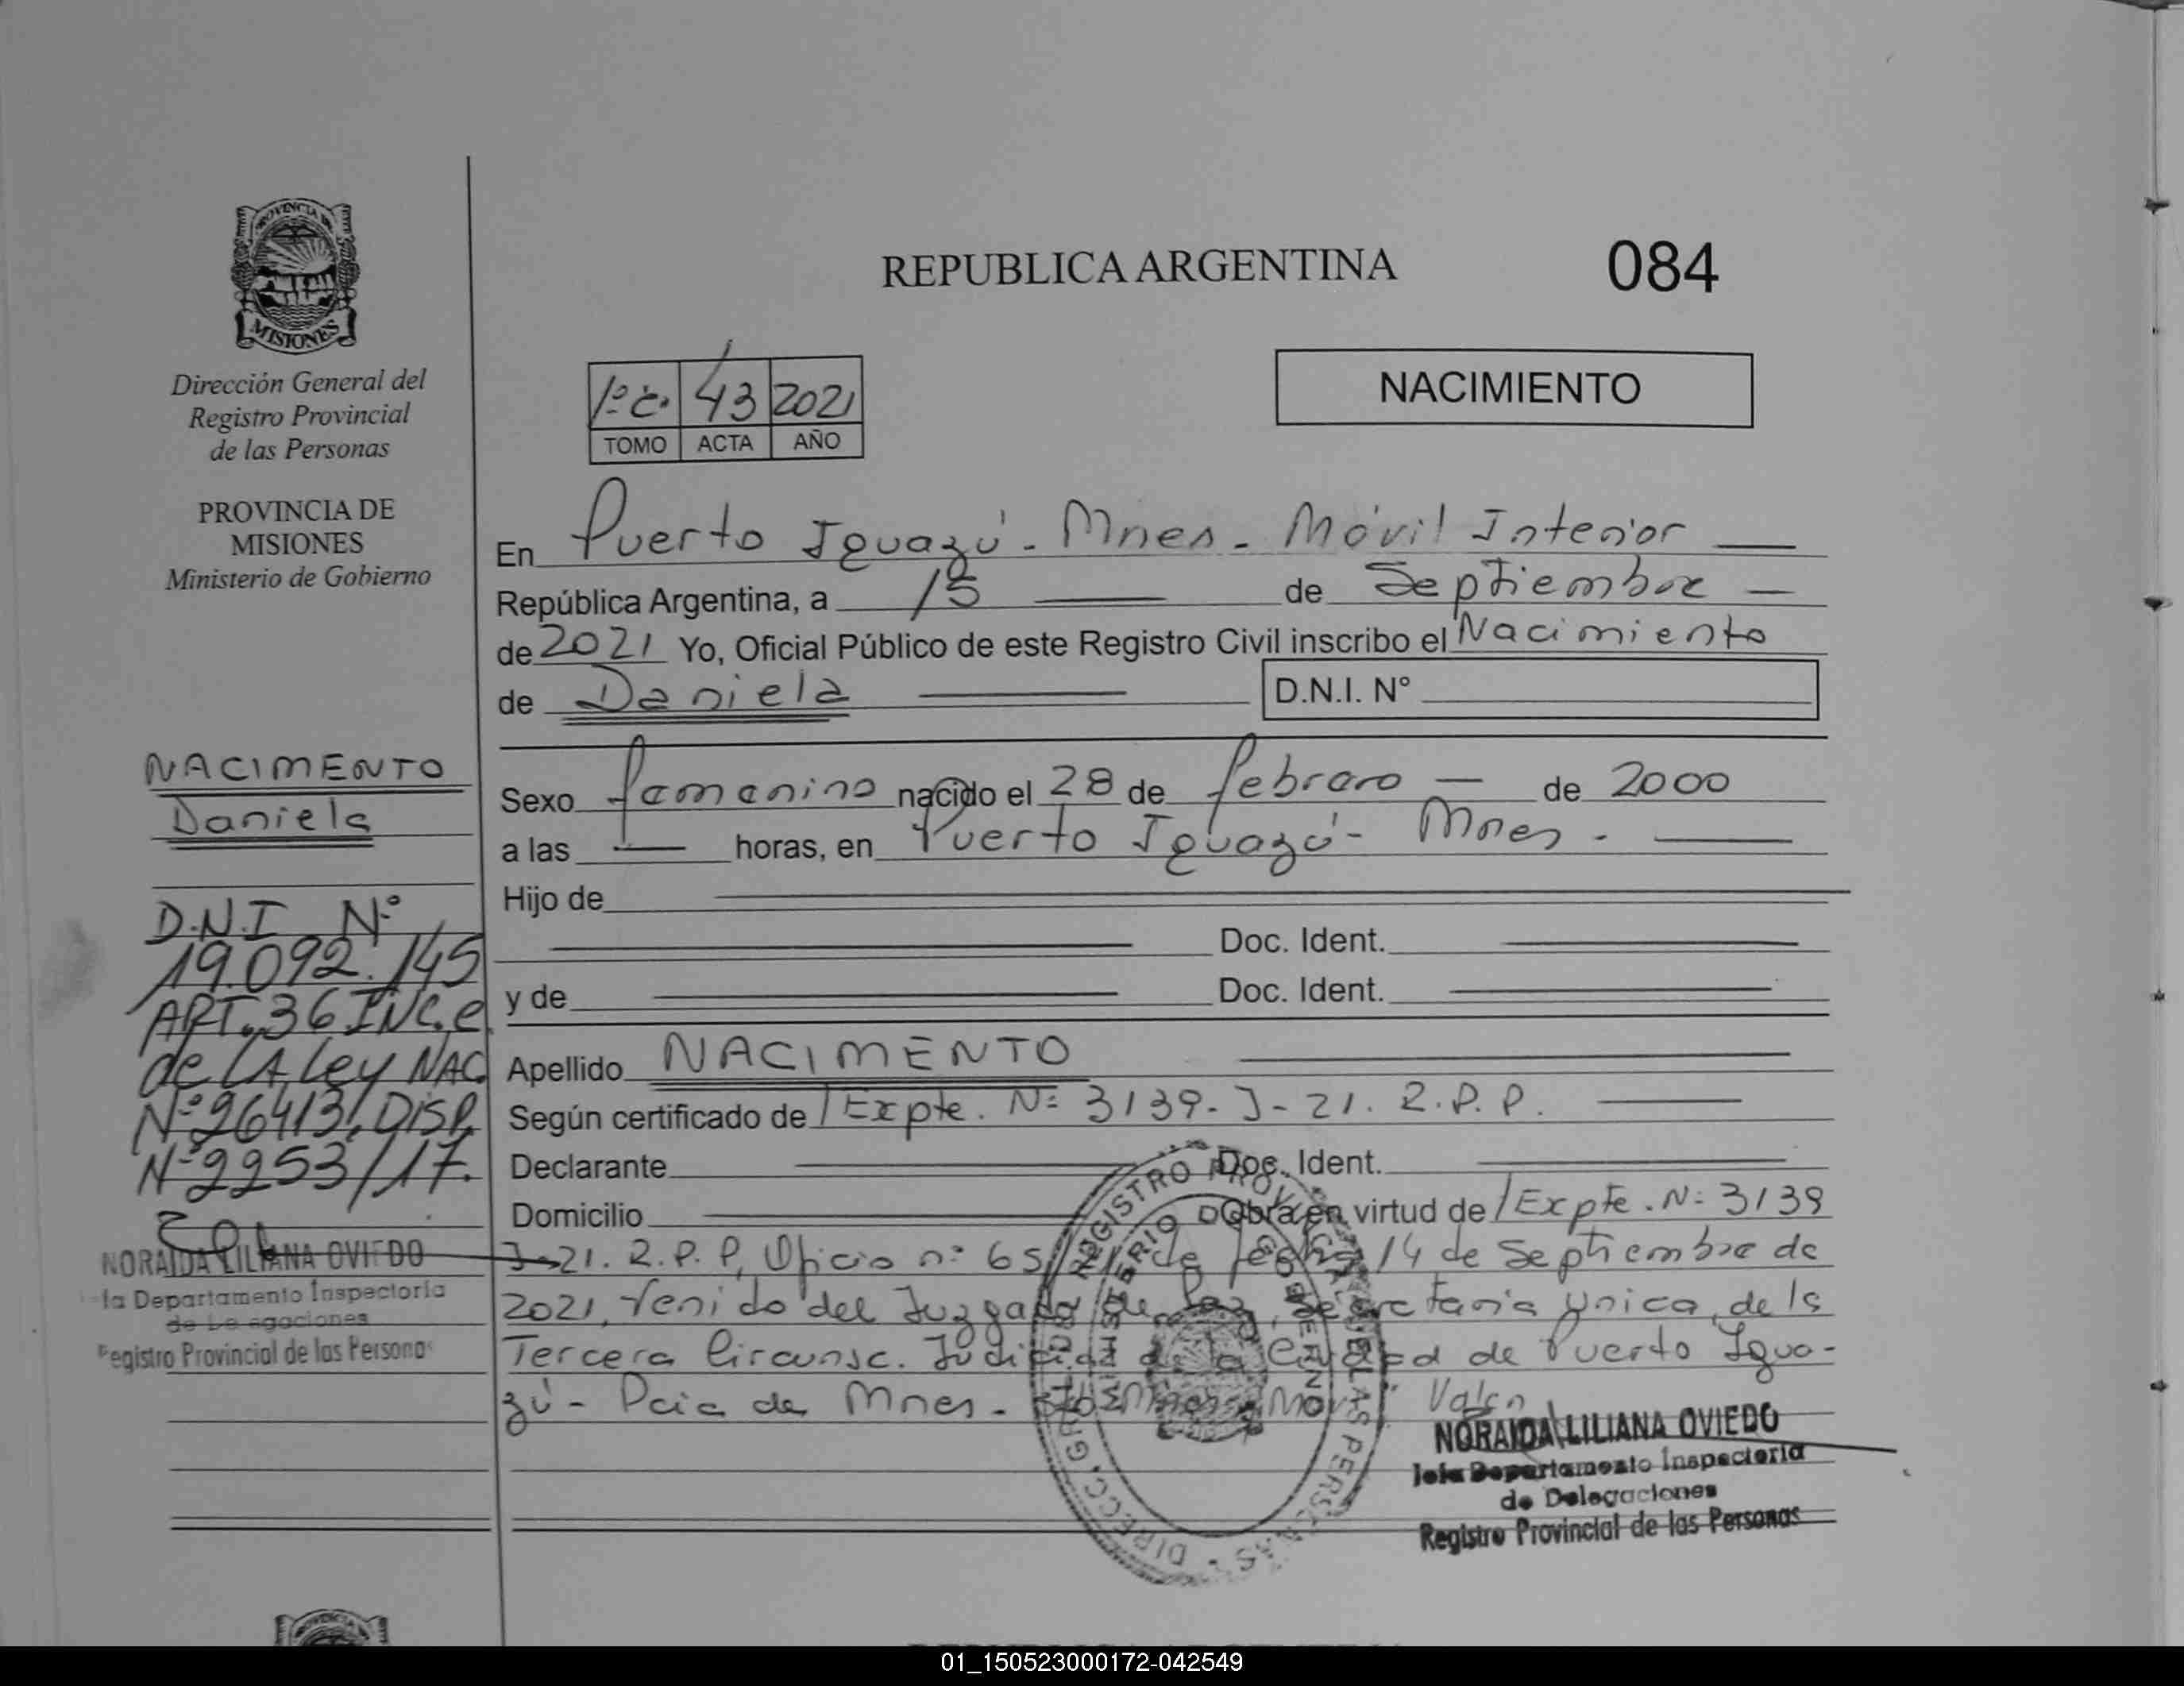 PROVINCIA DE
MISIONES
Dirección General del
Registro Provincial
de las Personas
PROVINCIA DE
MISIONES
Ministerio de Gobierno
NACIMENTO
Daniela
D.N.I Nº
19.092.145
ART. 36 INC. e
de LA Ley NAC
Nº 26413, DISP.
Nº 2253/17.
NORAIDA LILIANA OVIEDO
Departamento Inspectoria
de Delegaciones
Registro Provincial de las Personas
REPUBLICA ARGENTINA
084
1º c. 43 2021
TOMO ACTA AÑO
NACIMIENTO
En Puerto Iguazú - Mnes - Móvil Interior
República Argentina, a 15 de Septiembre
de 2021 Yo, Oficial Público de este Registro Civil inscribo el Nacimiento
de Daniela D.N.I. N°
Sexo femenino nacido el 28 de febrero de 2000
a las horas, en Puerto Iguazú - Mnes -
Hijo de
Doc. Ident.
y de Doc. Ident.
Apellido NACIMENTO
Según certificado de Expte. Nº 3139-J-21. R.P.P.
Declarante Doc. Ident.
Domicilio Obra en virtud de Expte. Nº 3139
J-21. R.P.P, Oficio nº 65 de fecha 14 de Septiembre de
2021, Venido del Juzgado de Paz, Secretaria Unica, de la
Tercera Circunsc. Judicial de la Ciudad de Puerto Igua-
zú - Pcia de Mnes -
Valen
NORAIDA LILIANA OVIEDO
Jefa Departamento Inspectoria
de Delegaciones
Registro Provincial de las Personas
01_150523000172-042549